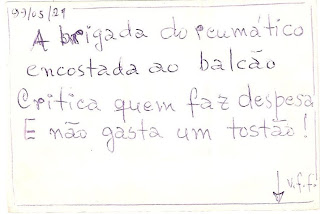 A brigada do reumático
encostada ao balcão
Critica quem faz despesa
E não gasta um tostão!
v.f.f.